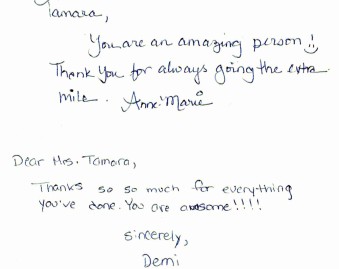 Tamara,
You are an amazing person!
Thank you for always going the extra
mile. Anne-Marie
Dear Mrs. Tamara,
Thanks so so much for everything
you've done. You are awesome!!!!
Sincerely,
Demi